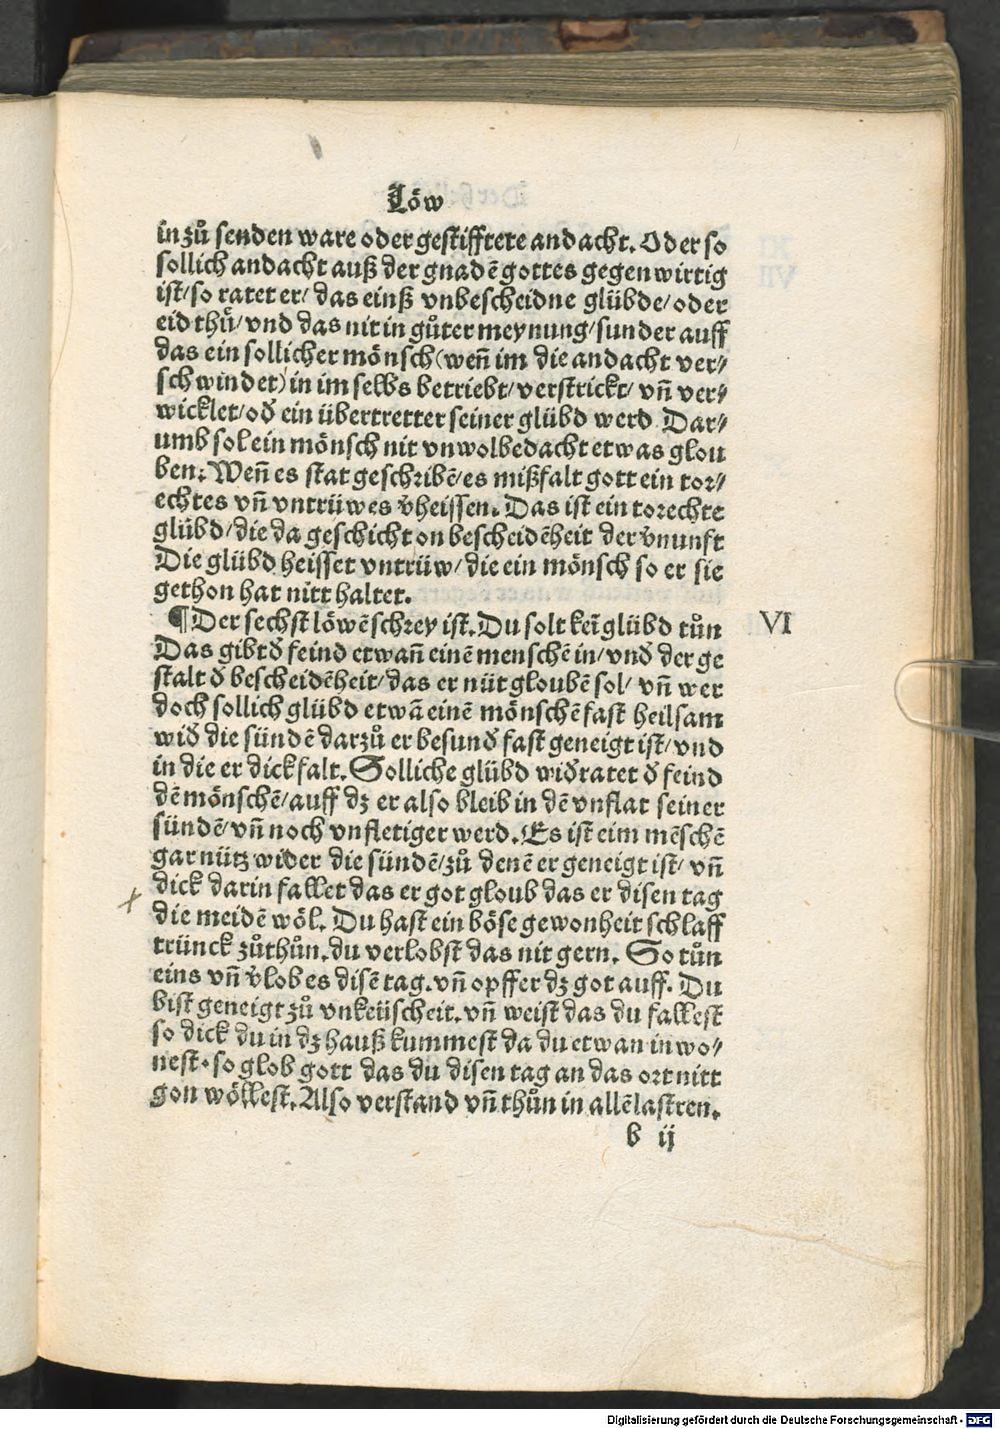 Löw
in zů senden ware oder gestifftete andacht. Oder so
sollich andacht auß der gnadē gottes gegenwirtig
ist/ so ratet er/ das einß vnbescheidne glübde/ oder
eid thü/ vnd das nit in gůter meynung/ sunder auff
das ein sollicher mönsch (weñ im die andacht ver⸗
schwindet) in im selbs betriebt/ verstrickt/ vñ ver⸗
wicklet/ oď ein übertretter seiner glübd werd Dar⸗
umb sol ein mönsch nit vnwolbedacht etwas glou
ben. Weñ es stat geschribē/ es mißfalt gott ein tor⸗
echtes vñ vntrüwes v̉heissen. Das ist ein torechte
glübd/ die da geschicht on bescheidēheit der v̉nunft
Die glübd heisset vntrüw/ die ein mönsch so er sie
gethon hat nitt haltet.
¶ Der sechst löwēschrey ist. Du solt keī glübd tůn
VI
Das gibt ď feind etwañ einē menschē in/ vnď der ge
stalt ď bescheidēheit/ das er nüt gloubē sol/ vñ wer
doch sollich glübd etwā einē mönschē fast heilsam
wiď die sündē darzů er besunď fast geneigt ist/ vnd
in die er dick falt. Solliche glübd wiďratet ď feind
dē mönschē/ auff dz er also bleib in dē vnflat seiner
sündē/ vñ noch vnfletiger werd. Es ist eim mēschē
gar nütz wider die sündē/ zů denē er geneigt ist/ vñ
dick darin fallet das er got gloub das er disen tag
die meidē wöl. Du hast ein böse gewonheit schlaff
trünck zůthůn. du verlobst das nit gern. So tůn
eins vñ v̉lob es disē tag. vñ opffer dz got auff. Du
bist geneigt zů vnkeüscheit. vñ weist das du fallest
so dick du in dz hauß kummest da du etwan in wo⸗
nest. so glob gott das du disen tag an das ort nitt
gon wöllest. Also verstand vñ thůn in allē lastren.
b ij
Digitalisierung gefördert durch die Deutsche Forschungsgemeinschaft - DFG